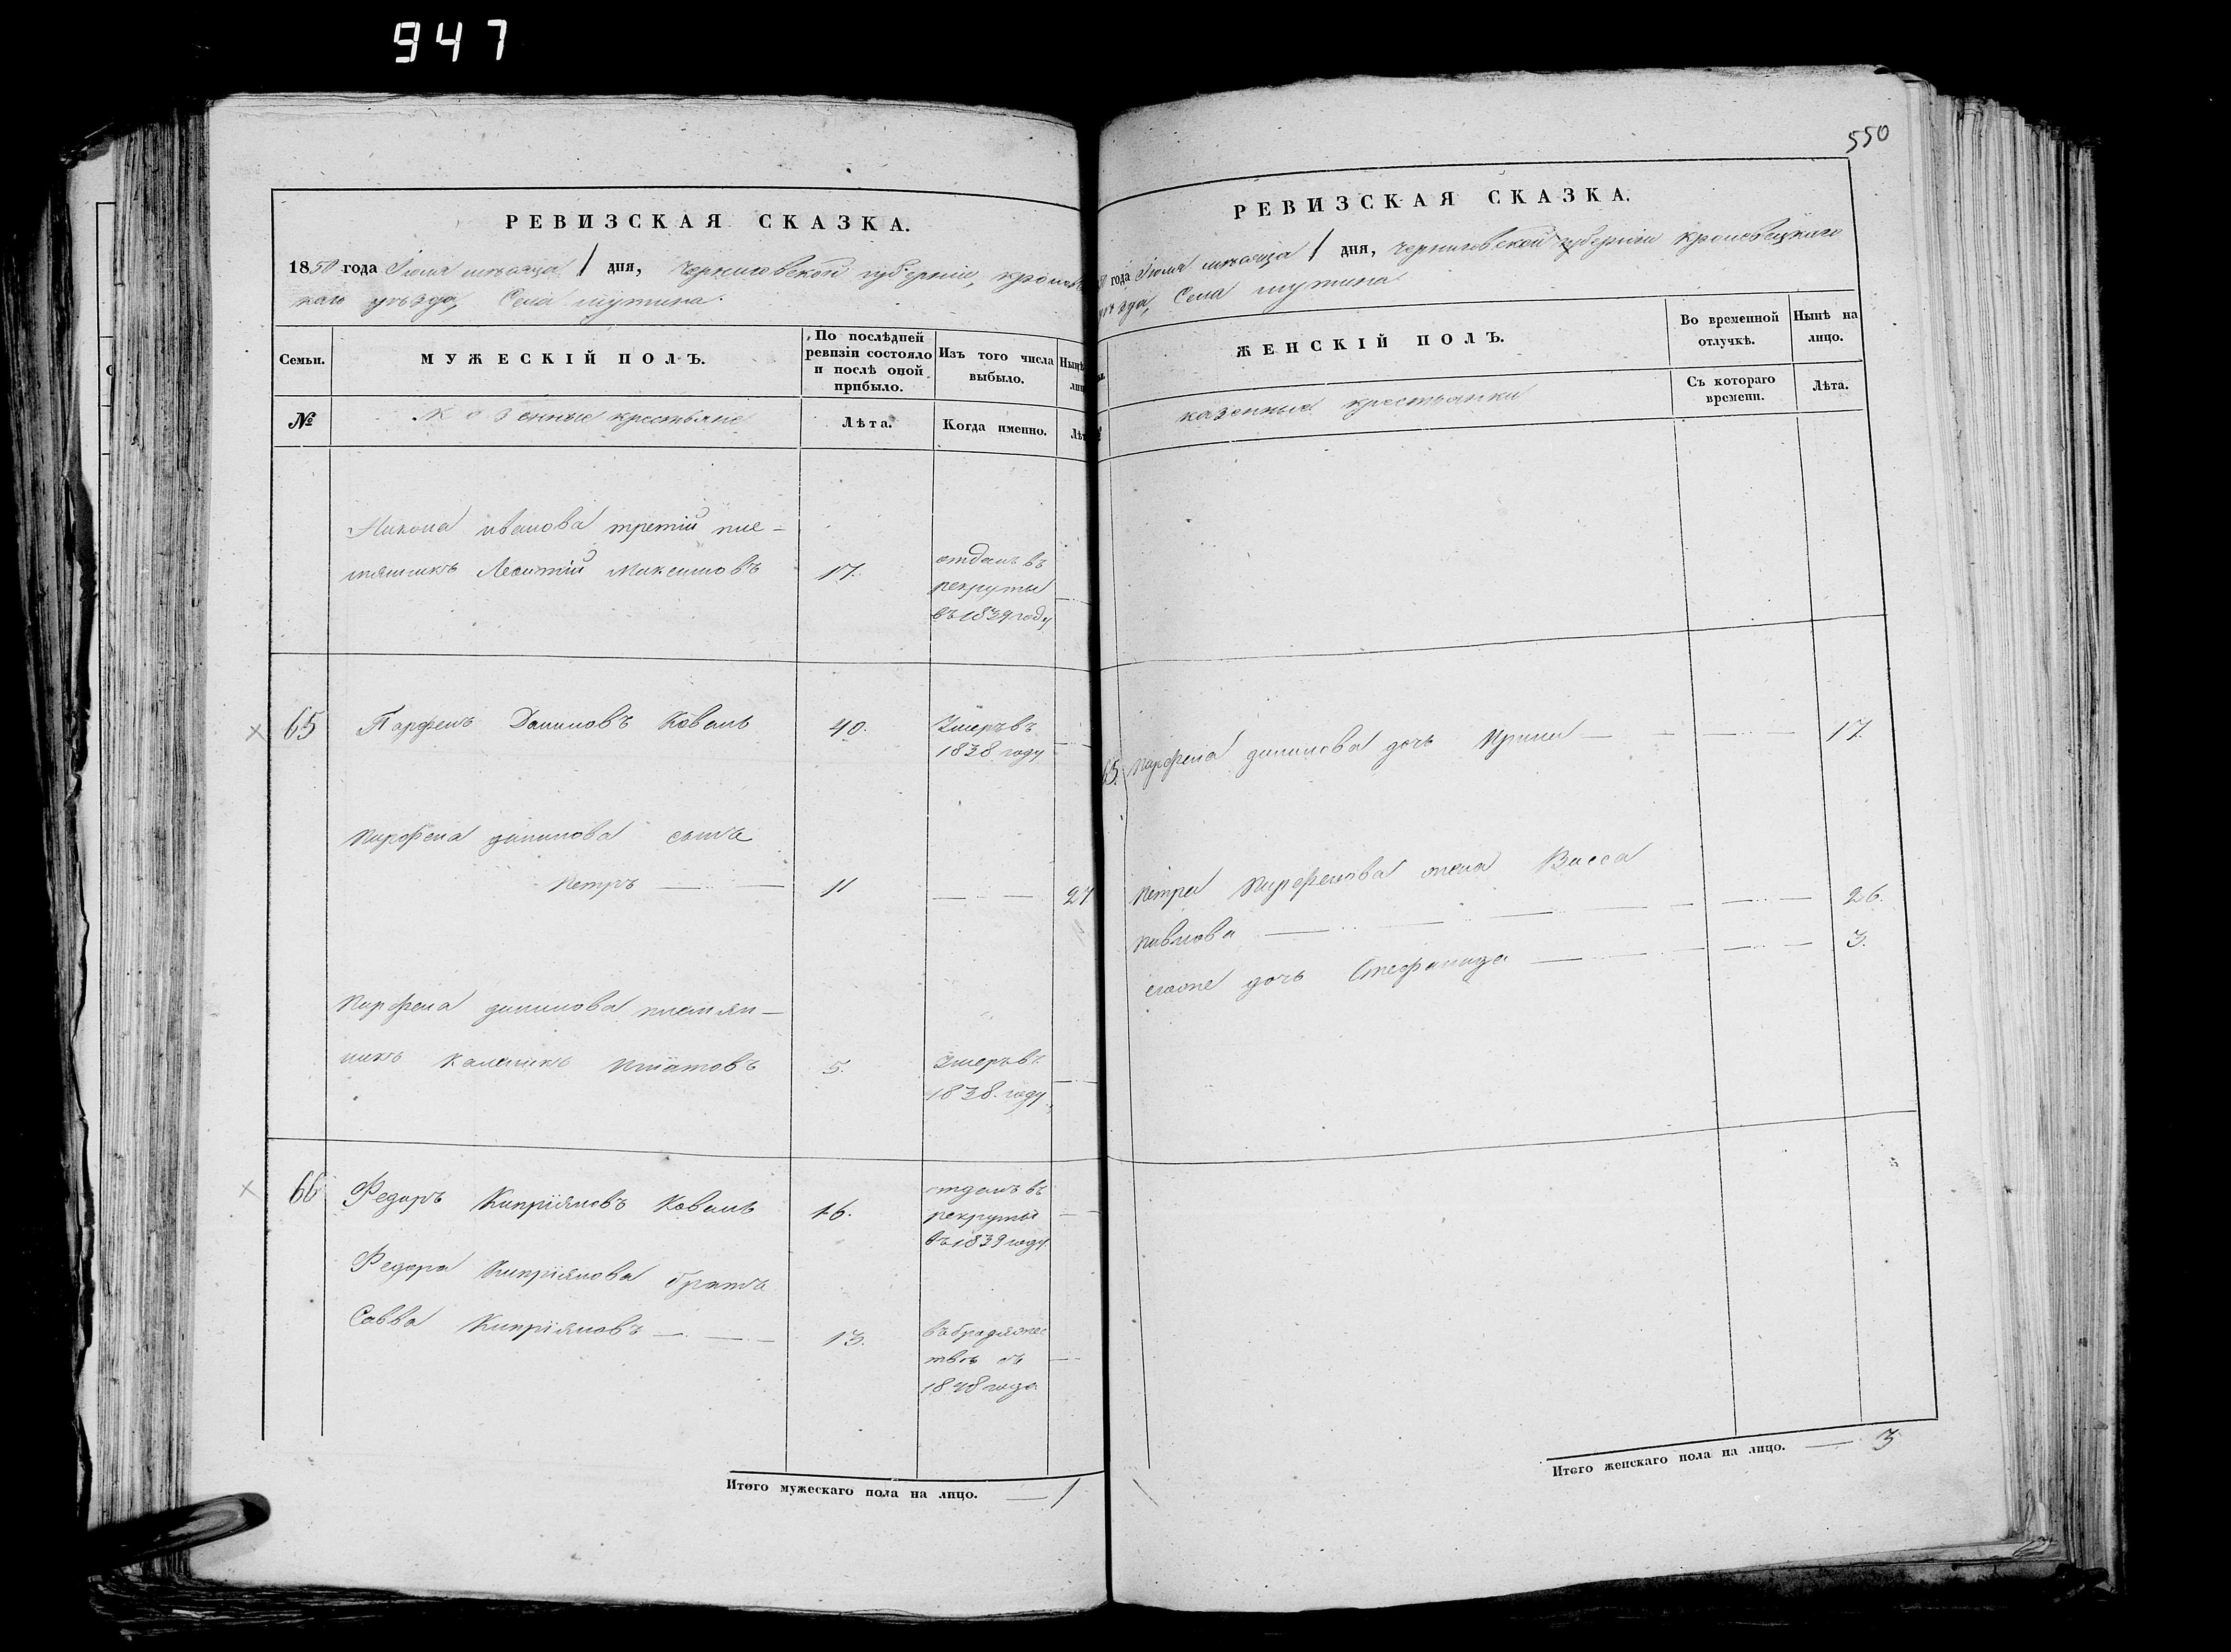 947
550
РЕВИЗСКАЯ СКАЗКА.
1850 года Іюля мѣсяца 1 дня, Черниговской губерніи, кролевец
каго уѣзда, Села мутина.
Семьи.
МУЖЕСКІЙ ПОЛЪ.
По послѣдней
ревизіи состояло
и послѣ оной
прибыло.
Изъ того числа
выбыло.
Нынѣ
лиц
№
Казенные крестьяне
Лѣта.
Когда именно.
Лѣт
иванова третій пле-
мянникъ Леонтій Максимовъ 17. отданъ въ
рекруты
въ 1839 году
65 Парфенъ Даниловъ Коваль 40. Умеръ въ
1838 году
Парфена данилова сынъ
Петръ 11 27
Парфена данилова племян-
никъ Каленикъ Игнатовъ 5. Умеръ въ
1838. году
66 Федоръ Кипріяновъ Коваль 16. отданъ въ
рекруты
въ 1839 году
Федора Кипріянова братъ
Савва Кипріяновъ 13. въ бродяжес
твѣ съ
1848 года
Итого мужескаго пола на лицо. 1
РЕВИЗСКАЯ СКАЗКА.
года Іюля мѣсяца 1 дня, Черниговской губерніи кролевецкаго
уѣзда, Села мутина
ЖЕНСКІЙ ПОЛЪ.
Во временной
отлучкѣ.
Нынѣ на
лицо.
казенные крестьянки
Съ котораго
времени.
Лѣта.
65. Парфена данилова дочь Ирина 17.
Петра Парфенова жена Васса
Павлова 26.
егоже дочь Стефанида 3.
Итого женскаго пола на лицо. 3